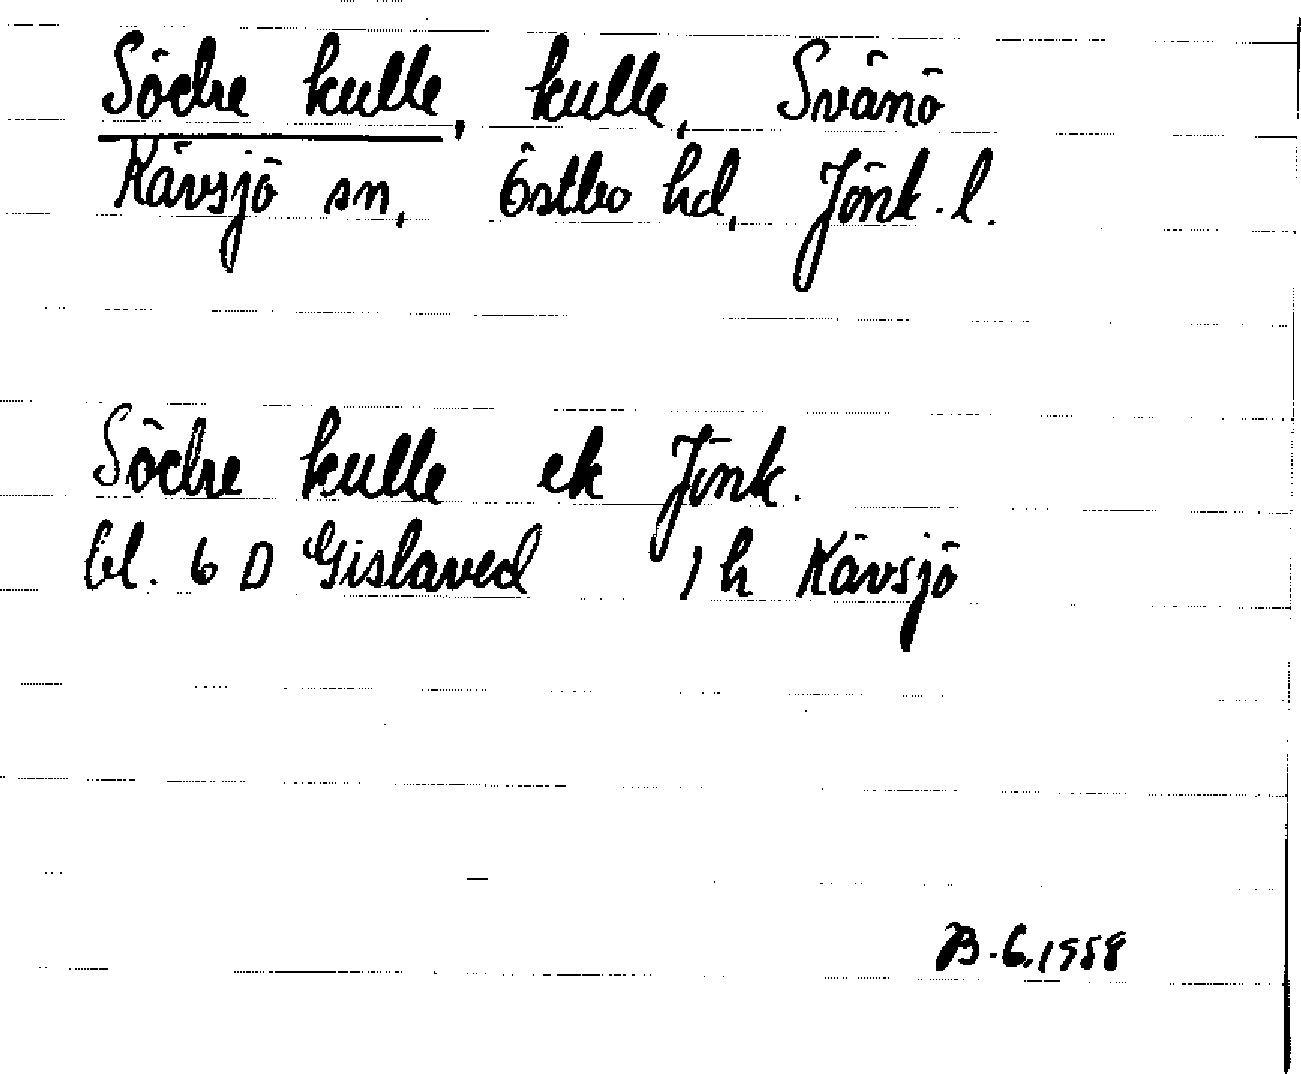 Södre kulle, kulle, Svänö
Kävsjö sn, Östbo hd, Jönk. l.
Södre kulle ek Jönk.
bl. 6 D Gislaved 1 h Kävsjö
B. G. 1958